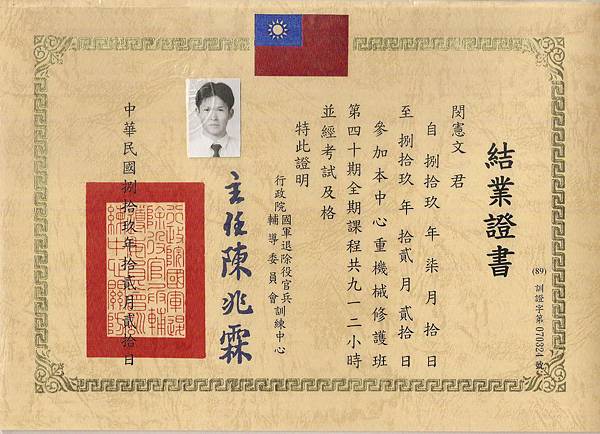 結業證書
(89) 訓證字第 070324 號
閔憲文 君
自捌拾玖年柒月拾日
至捌拾玖年拾貳月貳拾日
參加本中心重機械修護班
第四十期全期課程共九一二小時
並經考試及格
特此證明
行政院國軍退除役官兵輔導委員會訓練中心
主任陳兆霖
中華民國捌拾玖年拾貳月貳拾日